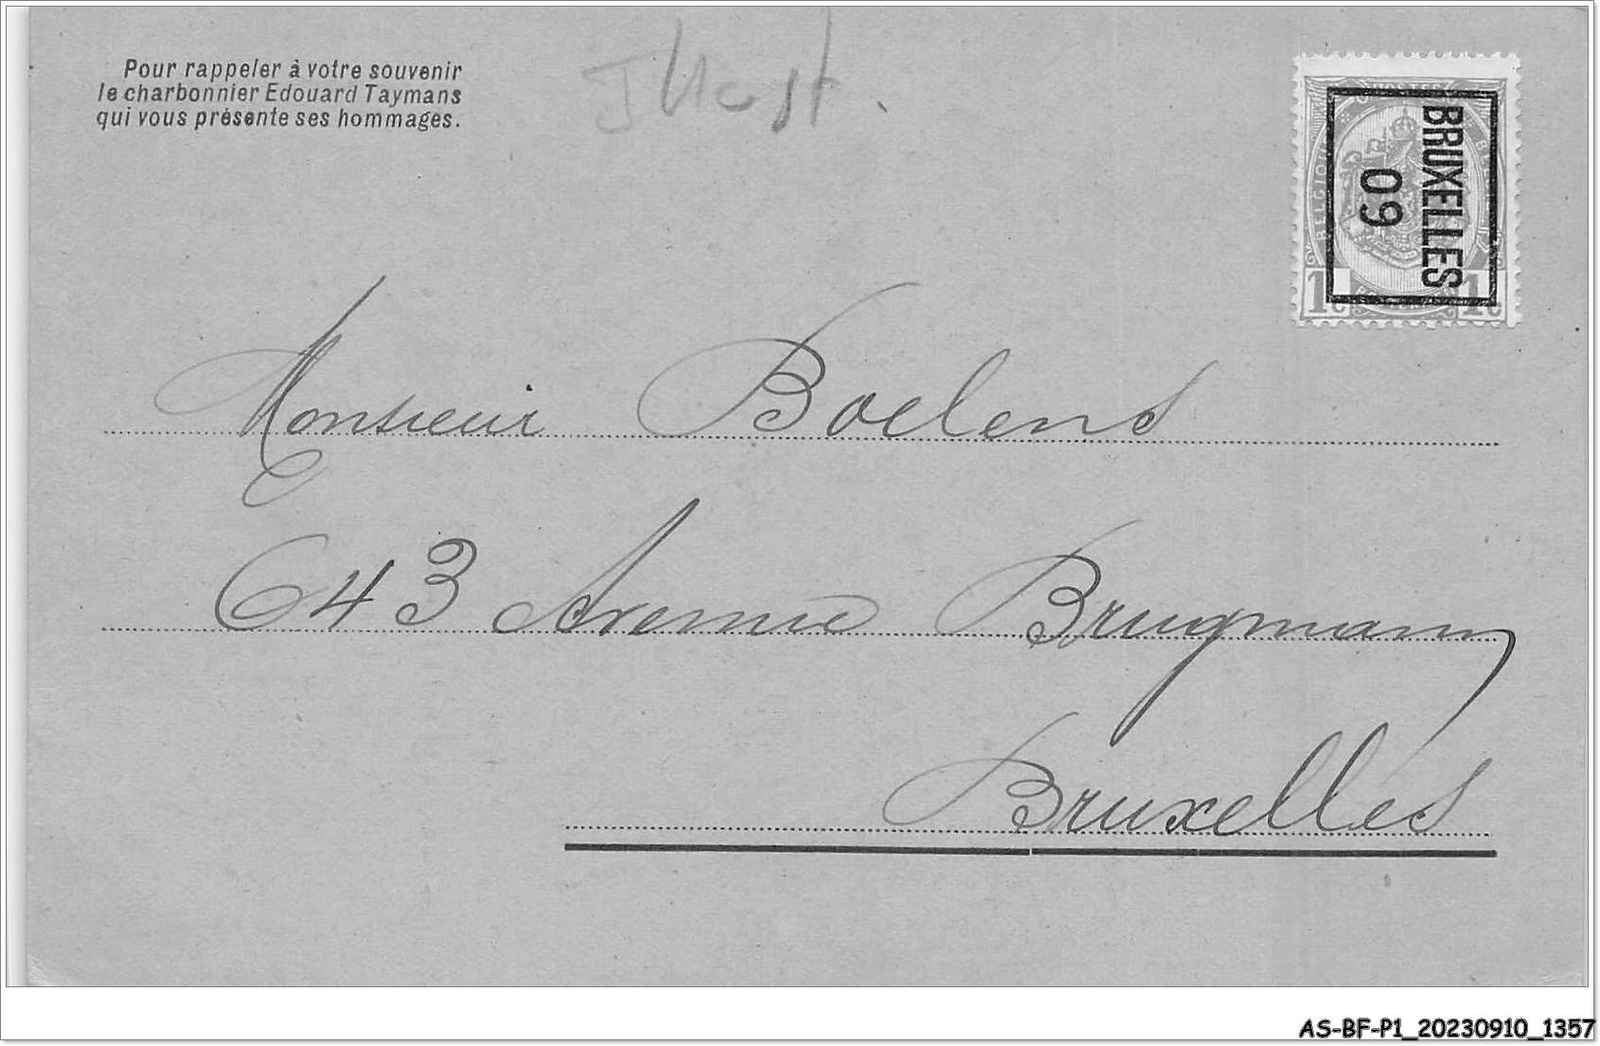 Pour rappeler à votre souvenir
le charbonnier Edouard Taymans
qui vous présente ses hommages.
Illust.
BRUXELLES
09
1c 1c
Monsieur Boelens
643 Avenue Brugmann
Bruxelles
AS-BF-P1_20230910_1357